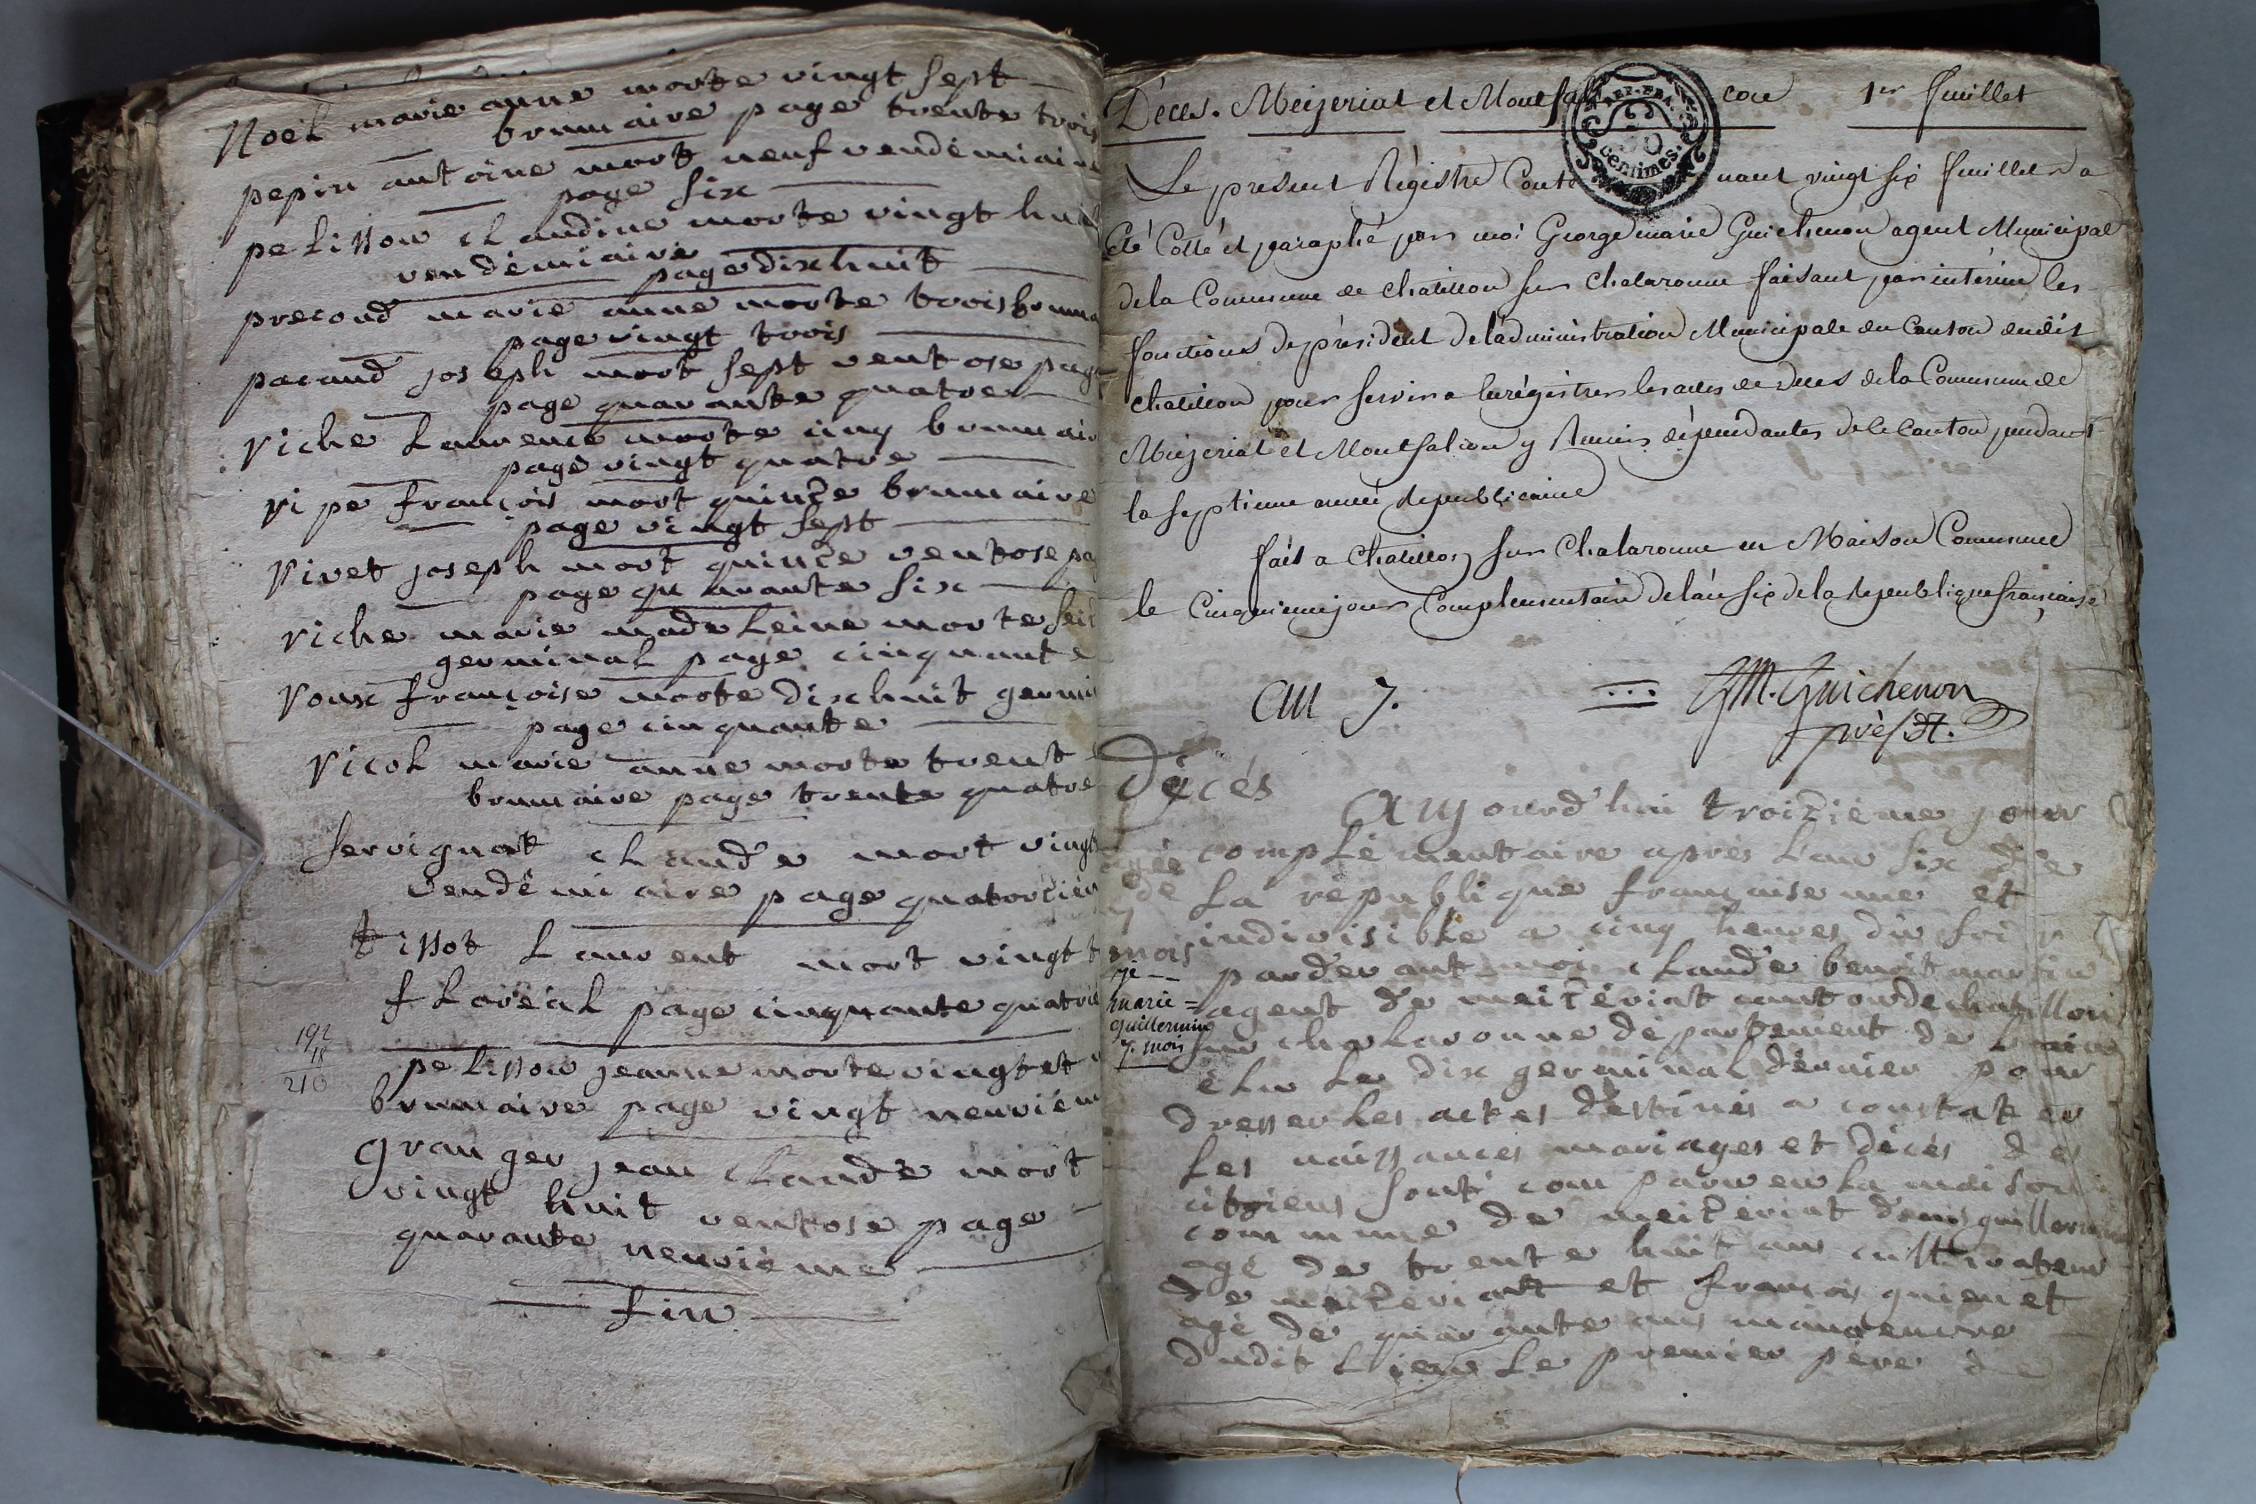 Noël marie anne morte vingt sept
brumaire page trente trois
pepin antoine mort neuf vendémiaire
page six
pelisson claudine morte vingt huit
vendémiaire page dixhuit
precond marie anne morte trois bruma
page vingt trois
pacaud joseph mort sept ventose page
page quarante quatre
riche Laurence morte cinq brumair
page vingt quatre
ripe françois mort quinze brumaire
page vingt sept
rivet joseph mort quinze ventose pa
page quarante six
riche marie madeleine morte sei
germinal page cinquante
roux françoise morte dixhuit germi
page cinquante
ricol marie anne morte trent
brumaire page trente quatre
servignat claude mort vingt
vendémiaire page quatorzièm
tissot Laurent mort vingt t
flaréal page cinquante quatriè
192
18
210
pelisson jeanne morte vingt et u
brumaire page vingt neuvièm
granger jean claude mort
vingt huit ventose page
quarante neuvième
fin
Déces. Meizeriat et Montfalcon 1er feuillet
REP. FRA.
50
centimes.
Le présent Régistre Contenant vingt six feuillets a
été Cotté et paraphé par moi George marie Guichenon agent Municipal
de la Commune de chatillon sur Chalaronne faisant par intérim les
fonctions de président de l'administration Municipale du Canton dudit
chatillon pour servir a enrégistrer les actes de Deces de la Commune de
Meizeriat et Montfalcon y Réunis dépendantes de ce Canton pendant
la septieme année Republicaine
fait a Chatillon sur Chalaronne en Maison Commune
le Cinquieme jour Complementaire de l'an six de la Republique française
an 7. GM. Guichenon
présdt.
Décès
Aujourd'hui troizième jour
complémentaire après l'an six de
la république française une et
indivisible a cinq heures du soir
pardevant moi claude benoit martin
agent de meizériat canton de chatillon
sur chalaronne département de l'ain
élu le dix germinal dérnier pour
dresser les actes déstinés a constater
les naissances mariages et décès des
citoiens sont comparu en la maison
commune de meizériat denis guillermin
agé de trente huit ans cultivateur
de meizériat et françois guienet
agé de quarante ans manoeuvre
dudit lieu le premier père de
agée
de
7
mois
marie
guillermin
7. mois